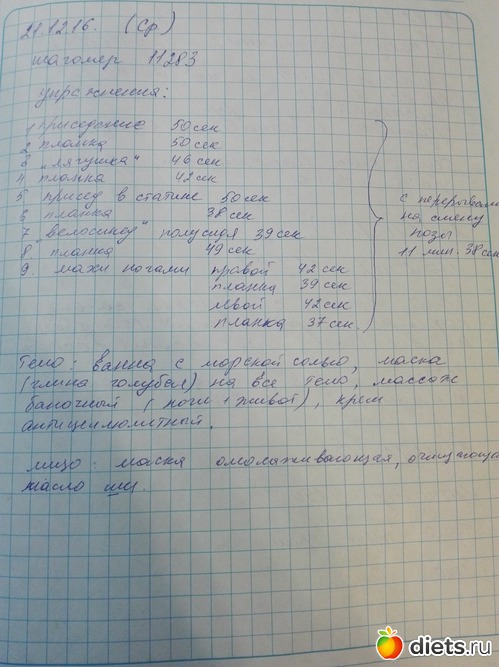 21.12.16. (Ср)
шагомер 11283
упражнения:
1 приседание 50 сек
2 планка 50 сек
3 "лягушка" 46 сек
4 планка 42 сек
5 присед в статике 50 сек
6 планка 38 сек
7 "велосипед" полусидя 39 сек
8. планка 49 сек
9. махи ногами правой 42 сек
планка 39 сек
левой 42 сек
планка 37 сек.
с перерывами
на смену
позы
11 мин. 38 сек
Тело: ванна с морской солью, маска
(глина голубая) на все тело, массаж
баночный (ноги + живот), крем
антицеллюлитный.
лицо: маска омолаживающая, очищающая
масло ши.
diets.ru